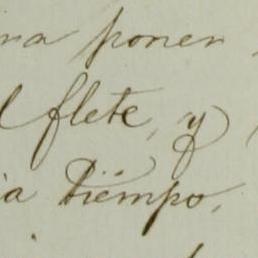 poner
flete, y
tiempo,